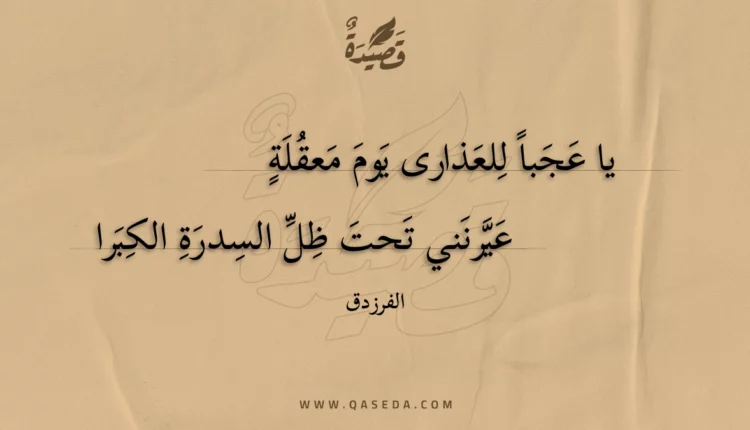 قَصِيْدَةٌ
يا عَجَباً لِلعَذارى يَومَ مَعقُلَةٍ
عَيَّرنَني تَحتَ ظِلِّ السِدرَةِ الكِبَرا
الفرزدق
WWW.QASEDA.COM